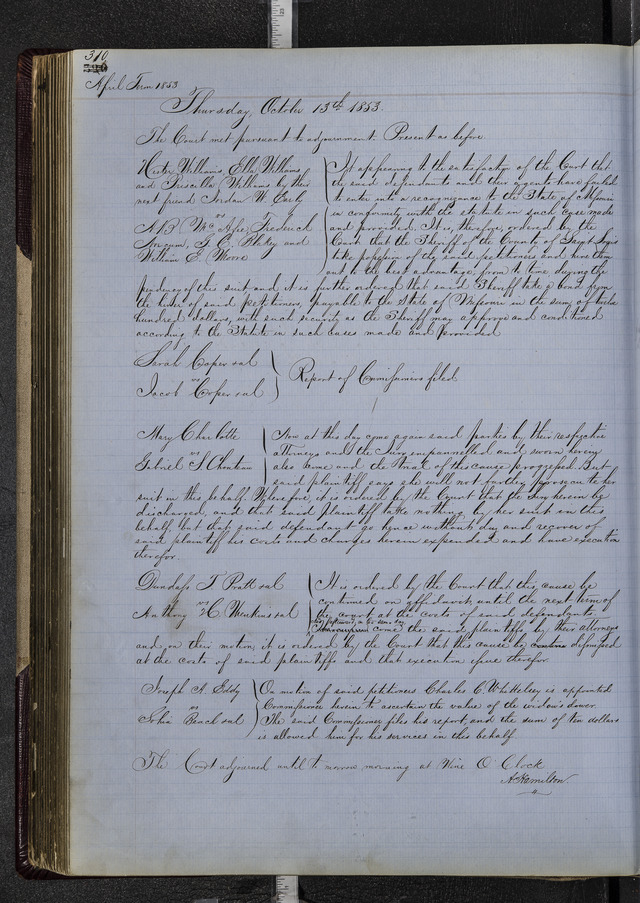 310
April Term 1853
Thursday, October 13th 1853.
The Court met pursuant to adjournment. Present as before.
Hester Williams, Ella Williams
and Priscilla Williams by their
next friend Jordan W. Early
vs
A B McAfee, Frederick
Norcum, G. C. Blakey and
William E Moore
It appearing to the satisfaction of the Court that
the said defendants and their agents have failed
to enter into a recognizance to the State of Missouri
in conformity with the statute in such case made
and provided. It is, therefore, ordered by the
Court that the Sheriff of the County of Saint Louis
take possession of the said petitioners and hire them
out to the best advantage, from time to time during the
pendency of this suit and it is further ordered that said Sheriff take a bond from
the hirer of said petitioners, payable to the State of Missouri in the sum of twelve
hundred dollars, with such security as the Sheriff may approve and conditioned
according to the Statute in such cases made and provided
Sarah Cooper et al
vs
Jacob Cooper et al
Report of Commissioners filed
Mary Charlotte
vs
Gabriel S Chouteau
Now at this day come again said parties by their respective
attorneys and the Jury empannelled and sworn herein
also come and the trial of this cause progressed. But
said plaintiff says she will not further prosecute her
suit in this behalf. Wherefore, it is ordered by the Court that the Jury herein be
discharged, and that said Plaintiff take nothing by her suit in this
behalf but that said defendant go hence without day and recover of
said plaintiff his costs and charges herein expended and have execution
therefor.
Dundass T Pratt et al
vs
Anthony C. Wenkins et al
It is ordered by the Court that this cause be
continued on affidavit, until the next term of
the court at the costs of said defendants
come the said plaintiffs by their attorneys
and, on their motion, it is ordered by the Court that this cause be dismissed
at the costs of said plaintiffs and that execution issue therefor.
Joseph A. Eddy
vs
John Beach et al
On motion of said petitioners Charles C. Whittelsey is appointed
Commissioner herein to ascertain the value of the widow's dower.
The said Commissioner files his report, and the sum of ten dollars
is allowed him for his services in this behalf
The Court adjourned until to morrow morning at Nine O'Clock
A Hamilton.